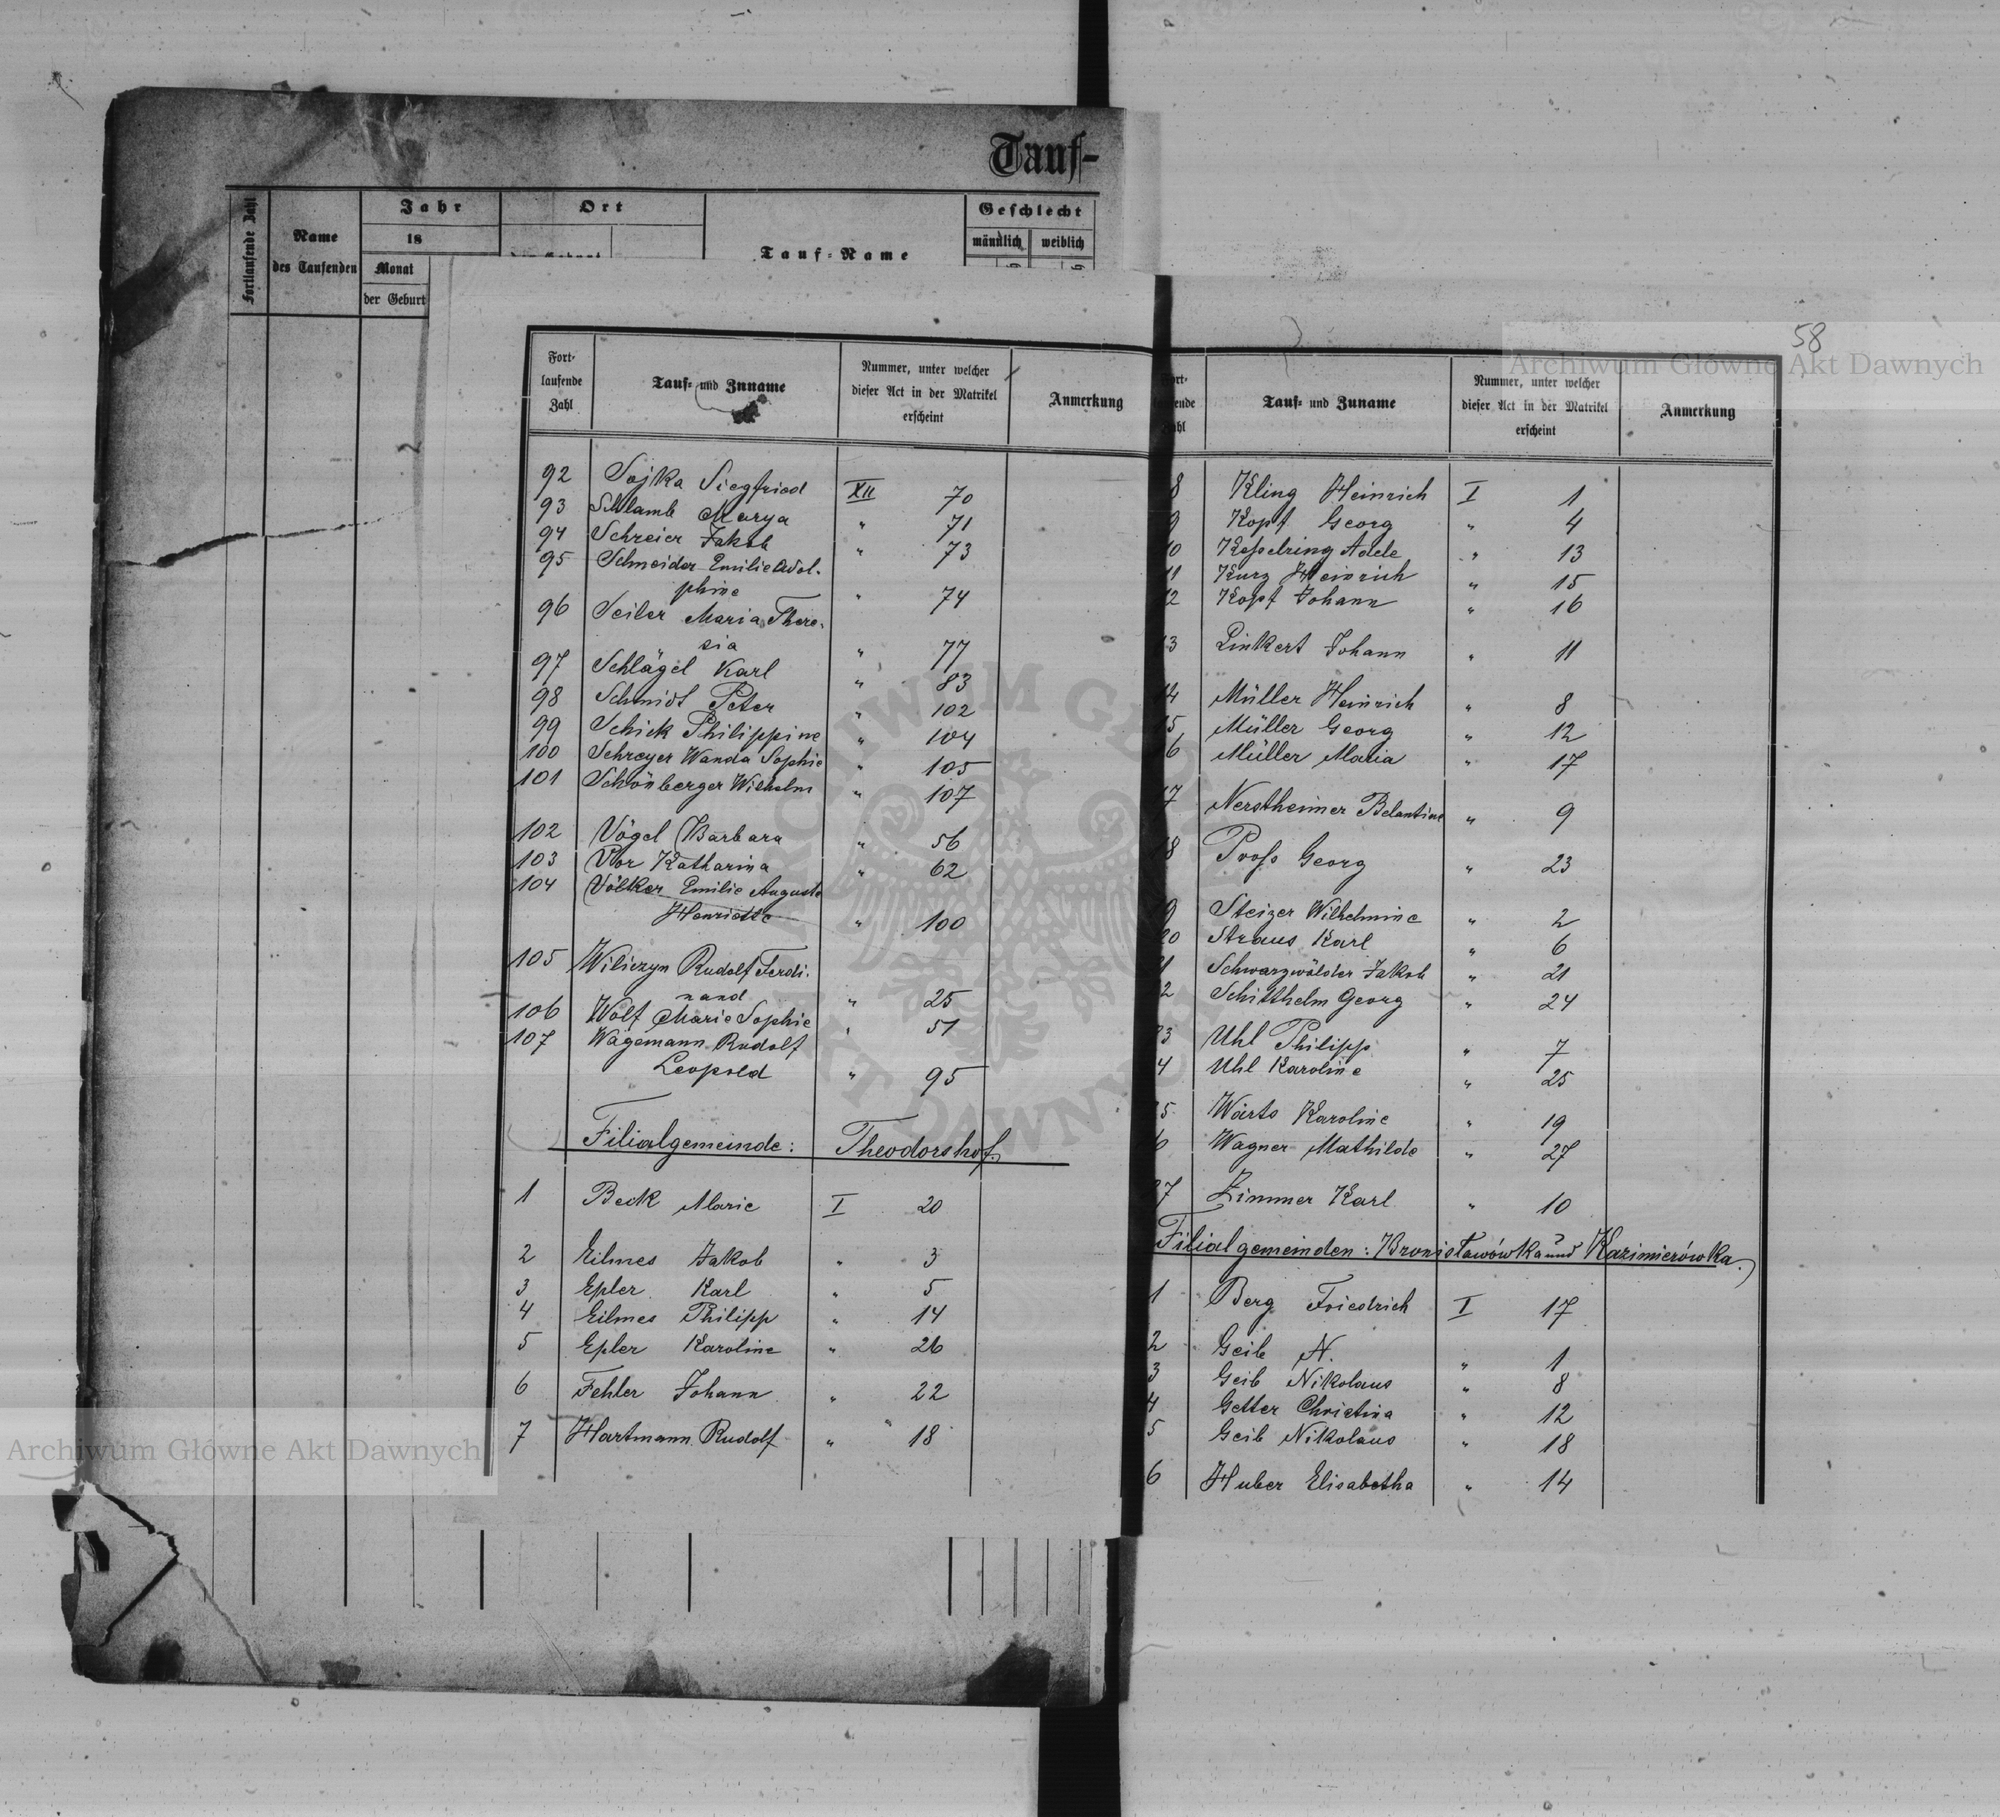 Tauf-
Fortlaufende Zahl
Name
des Taufenden
Jahr
18
Monat
der Geburt
Ort
Tauf-Name
Geschlecht
männlich weiblich
58
Archiwum Główne Akt Dawnych
Fort-
laufende
Zahl
Tauf- und Zuname
Nummer, unter welcher
dieser Act in der Matrikel
erscheint
Anmerkung
92 Sojka Siegfried XII 70
93 Schlamb Marya " 71
94 Schreier Jakob " 73
95 Schneider Emilie Adol-
phine " 74
96 Seiler Maria There-
sia " 77
97 Schlägel Karl " 83
98 Schmidt Peter " 102
99 Schick Philippine " 104
100 Schreyer Wanda Sophie " 105
101 Schönberger Wilhelm " 107
102 Vögel Barbara " 56
103 Vor Katharina " 62
104 Völker Emilie Auguste
Henriette " 100
105 Wiliczyn Rudolf Ferdi-
nand " 25
106 Wolf Marie Sophie " 51
107 Wagemann Rudolf
Leopold " 95
Filialgemeinde: Theodorshof.
1 Beck Marie I 20
2 Eilmes Jakob " 3
3 Epler Karl " 5
4 Eilmes Philipp " 14
5 Epler Karoline " 26
6 Fehler Johann " 22
7 Hartmann Rudolf " 18
Fort-
laufende
Zahl
Tauf- und Zuname
Nummer, unter welcher
dieser Act in der Matrikel
erscheint
Anmerkung
8 Kling Heinrich I 1
9 Kopf Georg " 4
10 Kesselring Adele " 13
11 Kurz Heinrich " 15
12 Kopf Johann " 16
13 Linkert Johann " 11
14 Müller Heinrich " 8
15 Müller Georg " 12
16 Müller Maria " 17
17 Nerstheimer Belantine " 9
18 Pross Georg " 23
19 Steizer Wilhelmine " 2
20 Straus Karl " 6
21 Schwarzwälder Jakob " 21
22 Schitthelm Georg " 24
23 Uhl Philipp " 7
24 Uhl Karoline " 25
25 Warts Karoline " 19
26 Wagner Mathilde " 27
27 Zimmer Karl " 10
Filialgemeinden: Bronisławówka und Kazimierówka.
1 Berg Friedrich I 17
2 Geib N. " 1
3 Geib Nikolaus " 8
4 Getter Christina " 12
5 Geib Nikolaus " 18
6 Huber Elisabetha " 14
Archiwum Główne Akt Dawnych